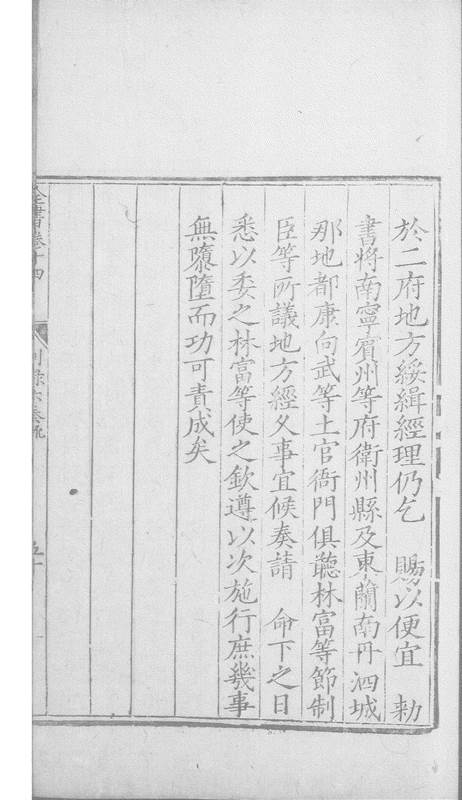 於二府地方綏緝經理仍乞　賜以便宜　勑
書將南寧賓州等府衛州縣及東蘭南丹泗城
那地都康向武等土官衙門俱聽林富等節制
臣等所議地方經久事宜候奏請　命下之日
悉以委之林富等使之欽遵以次施行庶幾事
無隳墮而功可責成矣
全書卷十四
別錄六奏疏